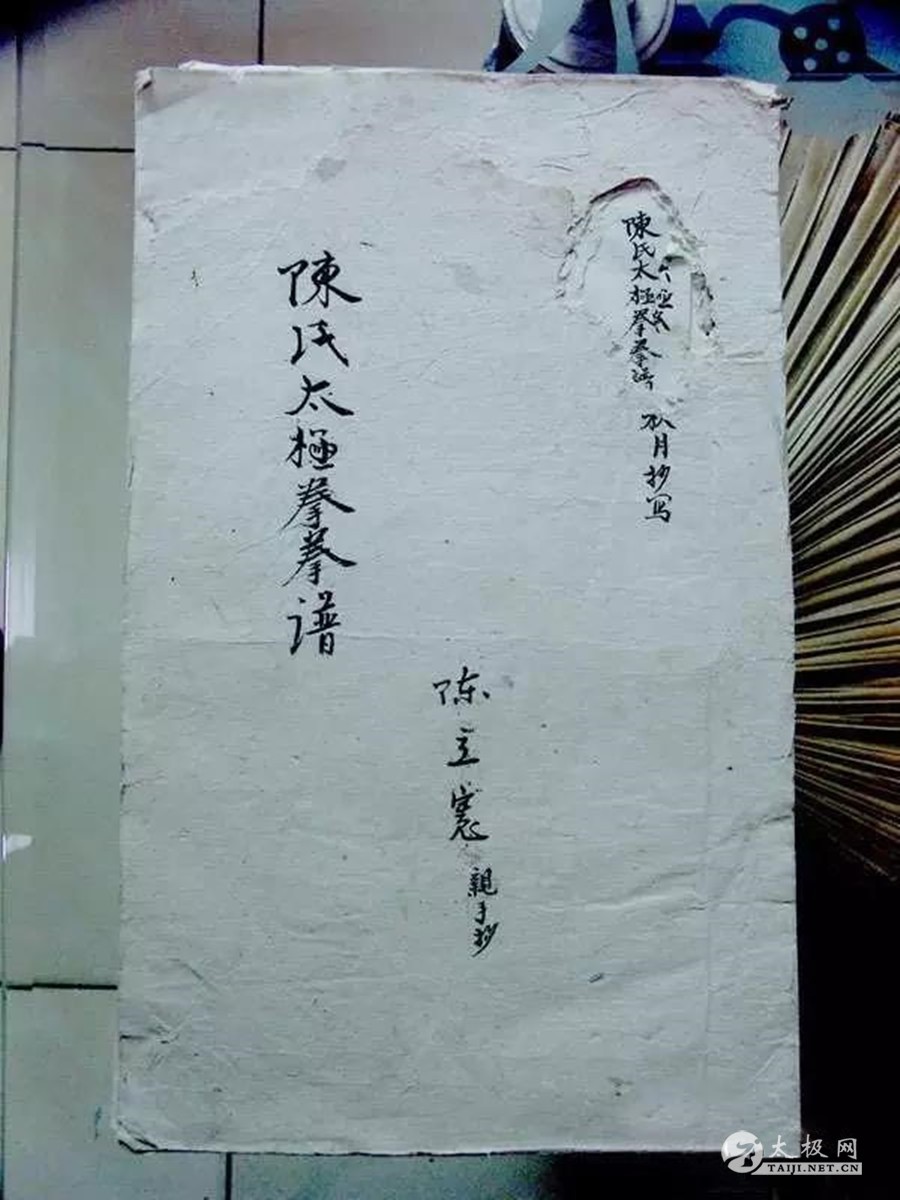 陳氏太極拳拳譜
八月抄写
陳氏太極拳拳譜
陈立憲
親手抄
太极网
TAIJI.NET.CN